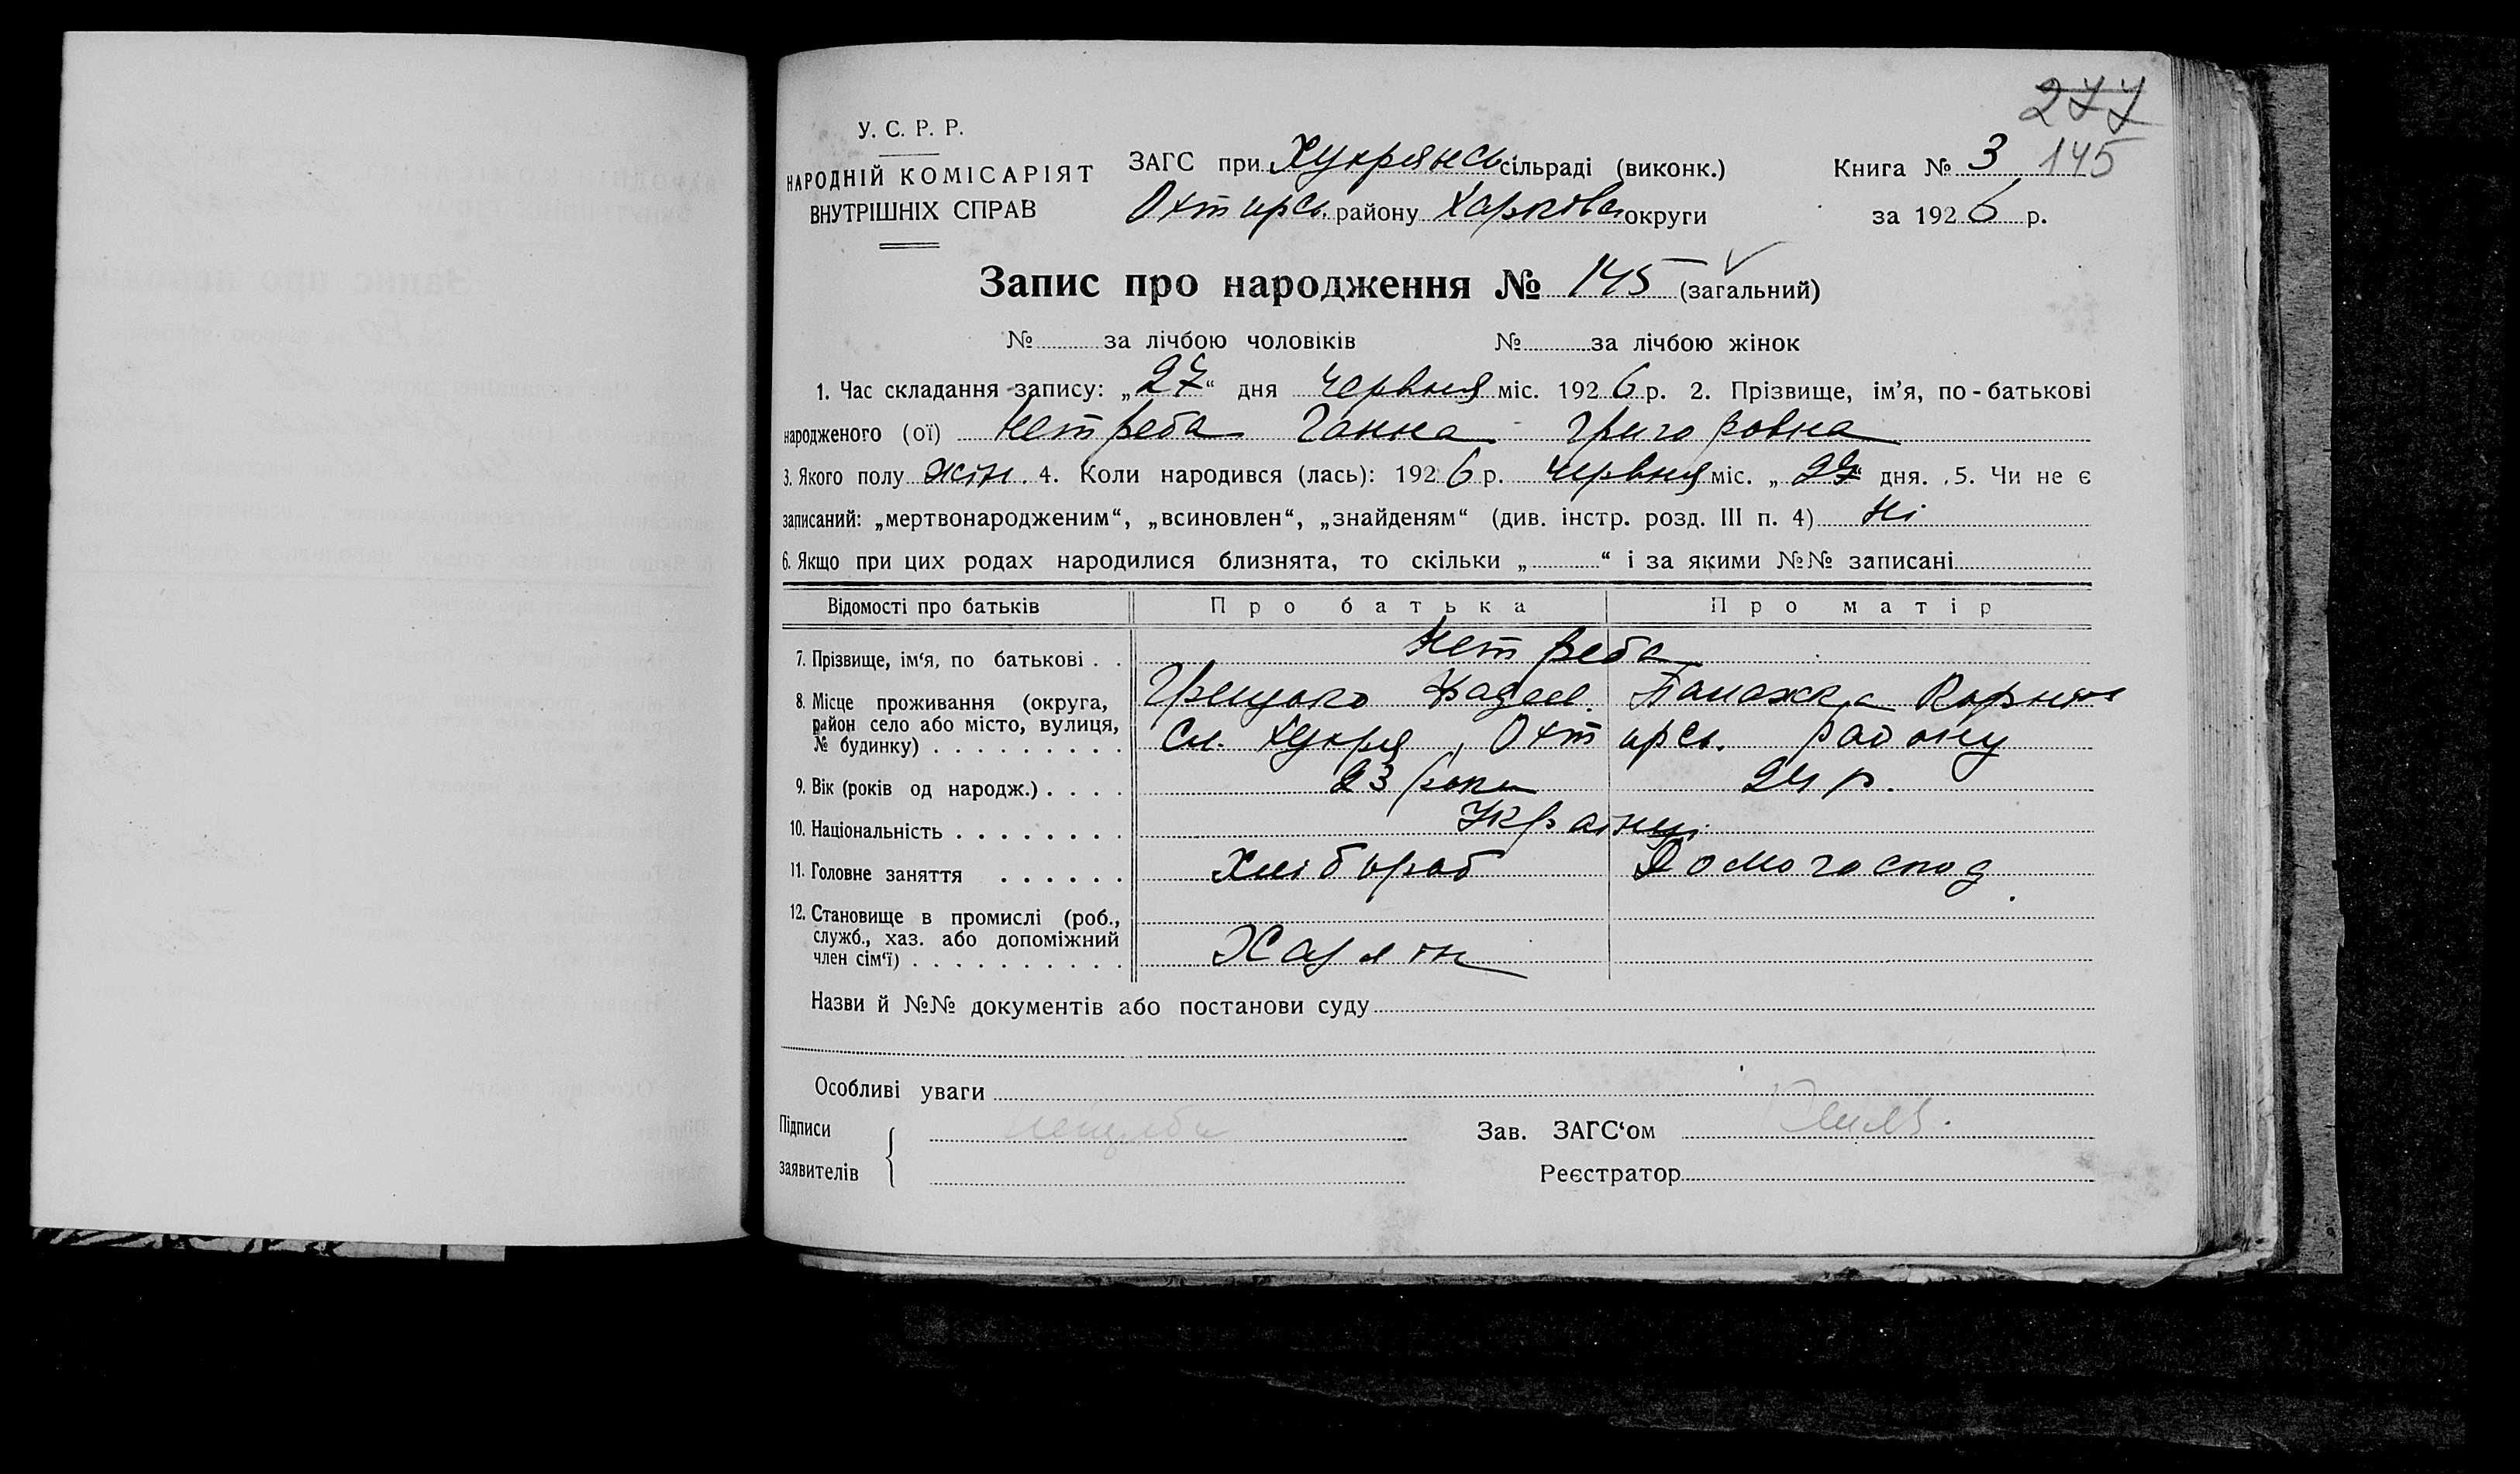 277
У. С. Р. Р.
НАРОДНІЙ КОМІСАРІЯТ
ВНУТРІШНІХ СПРАВ
ЗАГС при Хухрянсь сільраді (виконк.)
Охтирсь. району Харківсь округи
Книга № 3 145
за 1926 р.
Запис про народження № 145 (загальний)
№ за лічбою чоловіків № за лічбою жінок
1. Час складання запису: „27“ дня червня міс. 1926 р. 2. Прізвище, ім’я, по-батькові
народженого (ої) Нетреба Ганна Григоровна
3. Якого полу жін. 4. Коли народився (лась): 1926 р. червня міс. „ “ дня. 5. Чи не є
записаний: „мертвонародженим“, „всиновлен“, „знайденям“ (див. інстр. розд. III п. 4) Ні
6. Якщо при цих родах народилися близнята, то скільки „ “ і за якими №№ записані
Відомості про батьків Про батька Про матір
7. Прізвище, ім‘я, по батькові . . Нетреба
Грицько Фадеев. Палажка Корнів
8. Місце проживання (округа,
район село або місто, вулиця,
№ будинку) . . . . . . . . . Сл. Хухря, Охтирсь. району
9. Вік (років од народж.) . . . . 23 роки 24 р.
10. Національність . . . . . . . . Українці
11. Головне заняття . . . . . . Хлібороб Домогоспод.
12. Становище в промислі (роб.,
служб., хаз. або допоміжний
член сім‘ї) . . . . . . . . . . Хазяїн
Назви й №№ документів або постанови суду
Особливі уваги
Підписи
заявителів
Зав. ЗАГС‘ом
Реєстратор